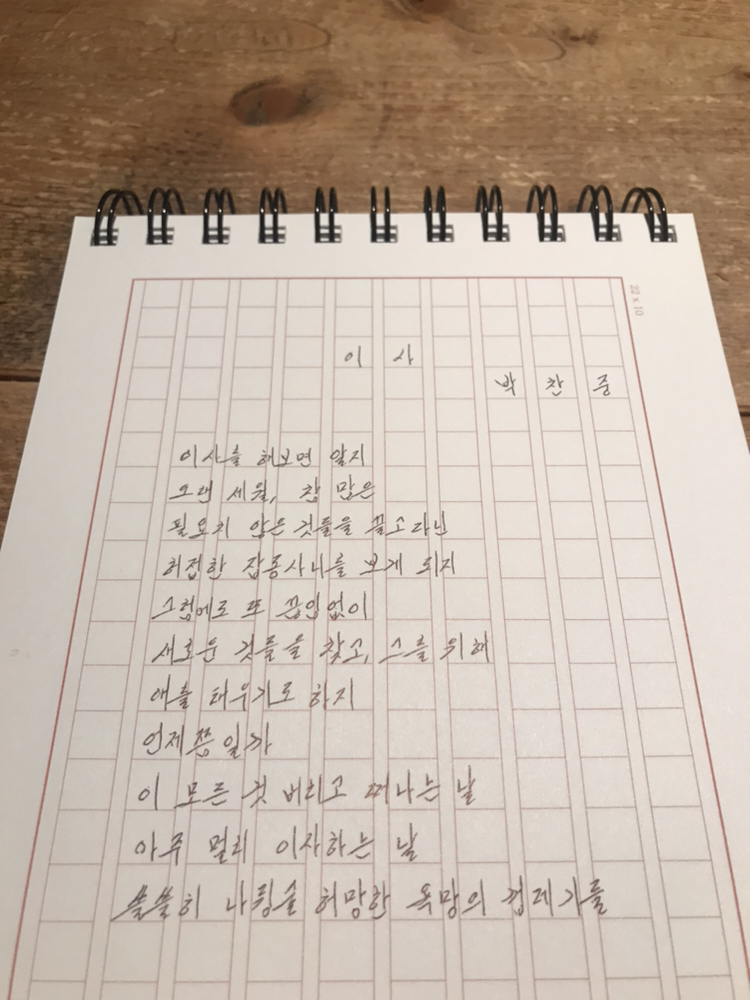 22 x 10
이 사
박 찬 중
이사를 해보면 알지
오랜 세월, 참 많은
필요치 않은 것들을 끌고다닌
허접한 잡동사니를 보게 되지
그럼에도 또 끊임없이
새로운 것들을 찾고, 그를 위해
애를 태우기도 하지
언제쯤일까
이 모든 것 버리고 떠나는 날
아주 멀리 이사하는 날
쓸쓸히 나뒹굴 허망한 욕망의 껍데기들